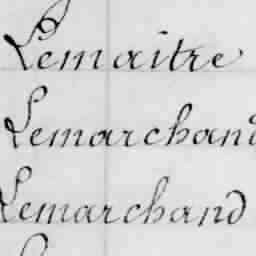 Lemaitre
Lemarchand
Lemarchand